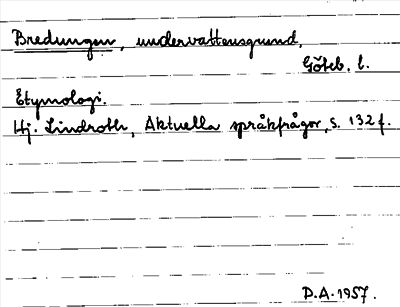 Bredungen, undervattensgrund,
Göteb. l.
Etymologi.
Hj. Lindroth, Aktuella språkfrågor, s. 132 f.
D.A. 1957.